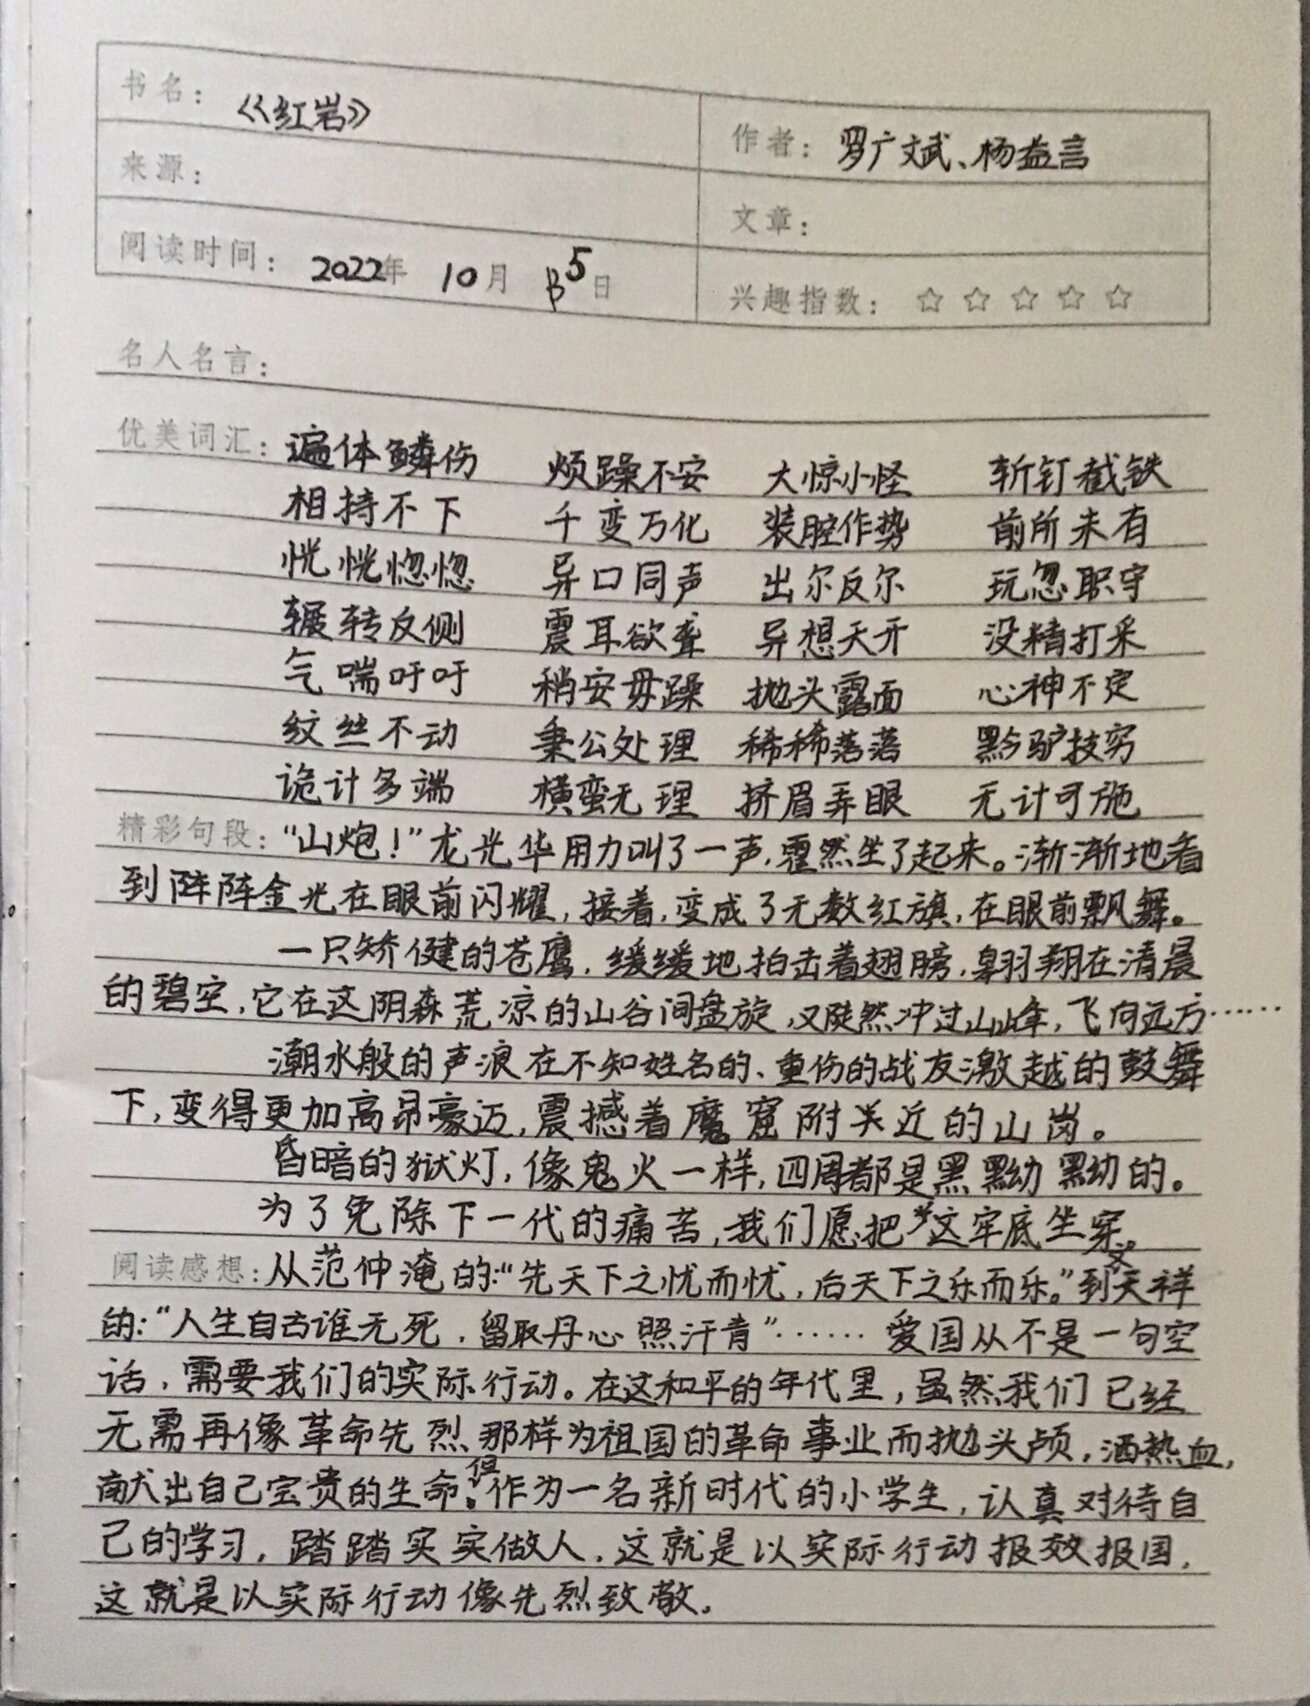 书名：《红岩》
作者：罗广斌、杨益言
来源：
文章：
阅读时间：2022年 10月 5日
兴趣指数：☆ ☆ ☆ ☆ ☆
名人名言：
优美词汇：遍体鳞伤 烦躁不安 大惊小怪 斩钉截铁
相持不下 千变万化 装腔作势 前所未有
恍恍惚惚 异口同声 出尔反尔 玩忽职守
辗转反侧 震耳欲聋 异想天开 没精打采
气喘吁吁 稍安毋躁 抛头露面 心神不定
纹丝不动 秉公处理 稀稀落落 黔驴技穷
诡计多端 横蛮无理 挤眉弄眼 无计可施
精彩句段：“山炮！”龙光华用力叫了一声，霍然坐了起来。渐渐地看
到阵阵金光在眼前闪耀，接着，变成了无数红旗，在眼前飘舞。
一只矫健的苍鹰，缓缓地拍击着翅膀，翱翔在清晨
的碧空，它在这阴森荒凉的山谷间盘旋，又陡然冲过山峰，飞向远方……
潮水般的声浪在不知姓名的、重伤的战友激越的鼓舞
下，变得更加高昂豪迈，震撼着魔窟附关近的山岗。
昏暗的狱灯，像鬼火一样，四周都是黑黝黝的。
为了免除下一代的痛苦，我们愿把这牢底坐穿。
阅读感想：从范仲淹的：“先天下之忧而忧，后天下之乐而乐。”到文天祥
的：“人生自古谁无死，留取丹心照汗青”…… 爱国从不是一句空
话，需要我们的实际行动。在这和平的年代里，虽然我们已经
无需再像革命先烈那样为祖国的革命事业而抛头颅，洒热血，
献出自己宝贵的生命。但作为一名新时代的小学生，认真对待自
己的学习，踏踏实实做人，这就是以实际行动报效报国，
这就是以实际行动像先烈致敬。